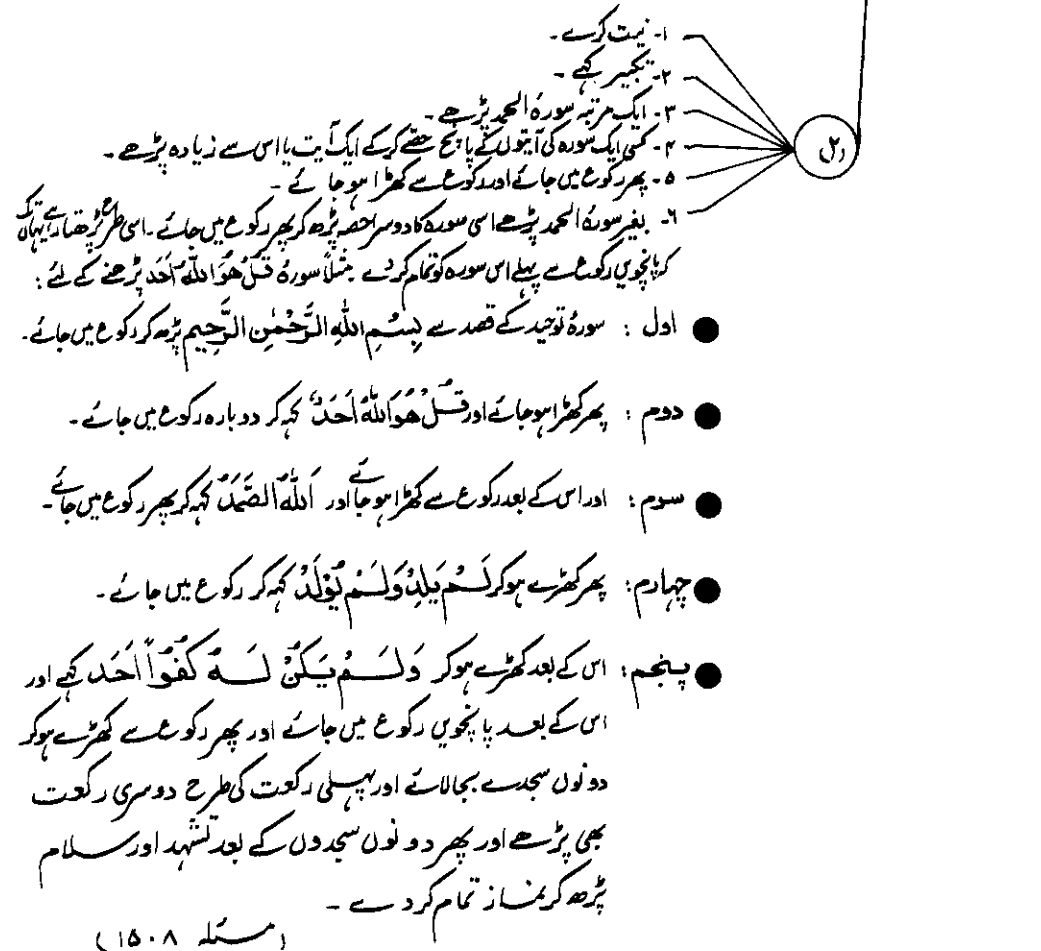 ۱۔ نیت کرے ۔
۲۔ تکبیر کہے ۔
۳۔ ایک مرتبہ سورۂ الحمد پڑھے ۔
(۲)
۴۔ کسی ایک سورہ کی آیتوں کے پانچ حصے کرکے ایک آیت یا اس سے زیادہ پڑھے ۔
۵۔ پھر رکوع میں جائے اور رکوع سے کھڑا ہو جائے ۔
۶۔ بغیر سورۂ الحمد پڑھے اسی سورہ کا دوسرا حصہ پڑھ کر پھر رکوع میں جائے ۔ اسی طرح پڑھتا رہے یہاں تک
کہ پانچویں رکوع سے پہلے اس سورہ کو تمام کر دے مثلاً سورۂ قُلْ هُوَ اللّٰهُ اَحَد پڑھنے کے لئے :
● اول : سورۂ توحید کے قصد سے بِسْمِ اللّٰهِ الرَّحْمٰنِ الرَّحِیمِ پڑھ کر رکوع میں جائے ۔
● دوم : پھر کھڑا ہو جائے اور قُلْ هُوَ اللّٰهُ اَحَدٌ کہہ کر دوبارہ رکوع میں جائے ۔
● سوم : اور اس کے بعد رکوع سے کھڑا ہو جائے اور اَللّٰهُ الصَّمَدُ کہہ کر پھر رکوع میں جائے ۔
● چہارم : پھر کھڑے ہو کر لَمْ یَلِدْ وَلَمْ یُوْلَدْ کہہ کر رکوع میں جائے ۔
● پنجم : اس کے بعد کھڑے ہو کر وَلَمْ یَکُنْ لَهُ کُفُوًا اَحَد کہے اور
اس کے بعد پانچویں رکوع میں جائے اور پھر رکوع سے کھڑے ہو کر
دونوں سجدے بجالائے اور پہلی رکعت کی طرح دوسری رکعت
بھی پڑھے اور پھر دونوں سجدوں کے بعد تشہد اور سلام
پڑھ کر نماز تمام کر دے ۔
(مسئلہ ۱۵۰۸)